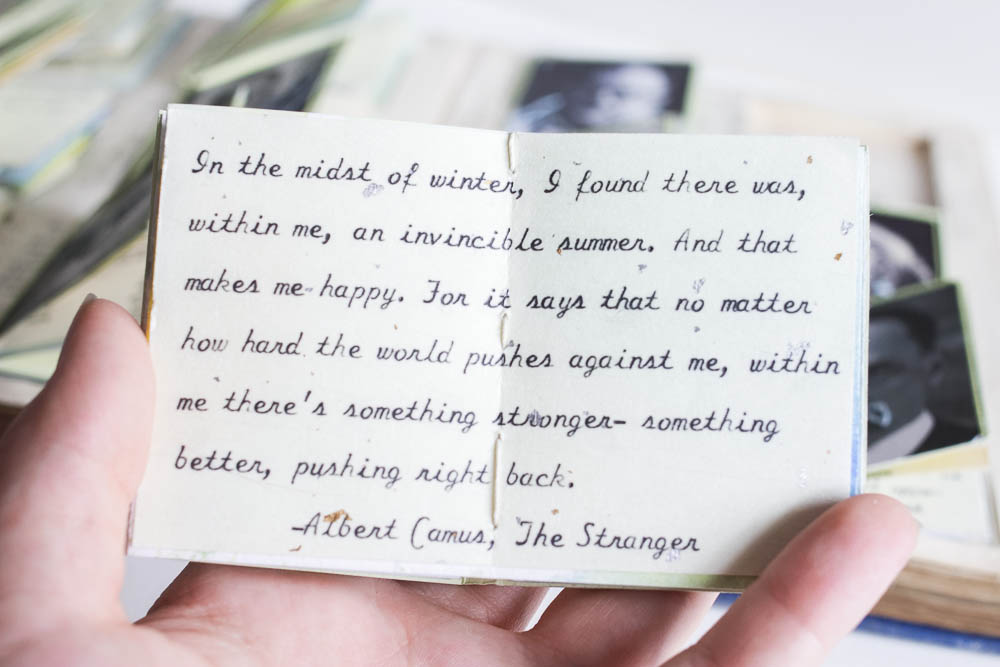 In the midst of winter, I found there was,
within me, an invincible summer. And that
makes me happy. For it says that no matter
how hard the world pushes against me, within
me there's something stronger- something
better, pushing right back.
-Albert Camus, The Stranger